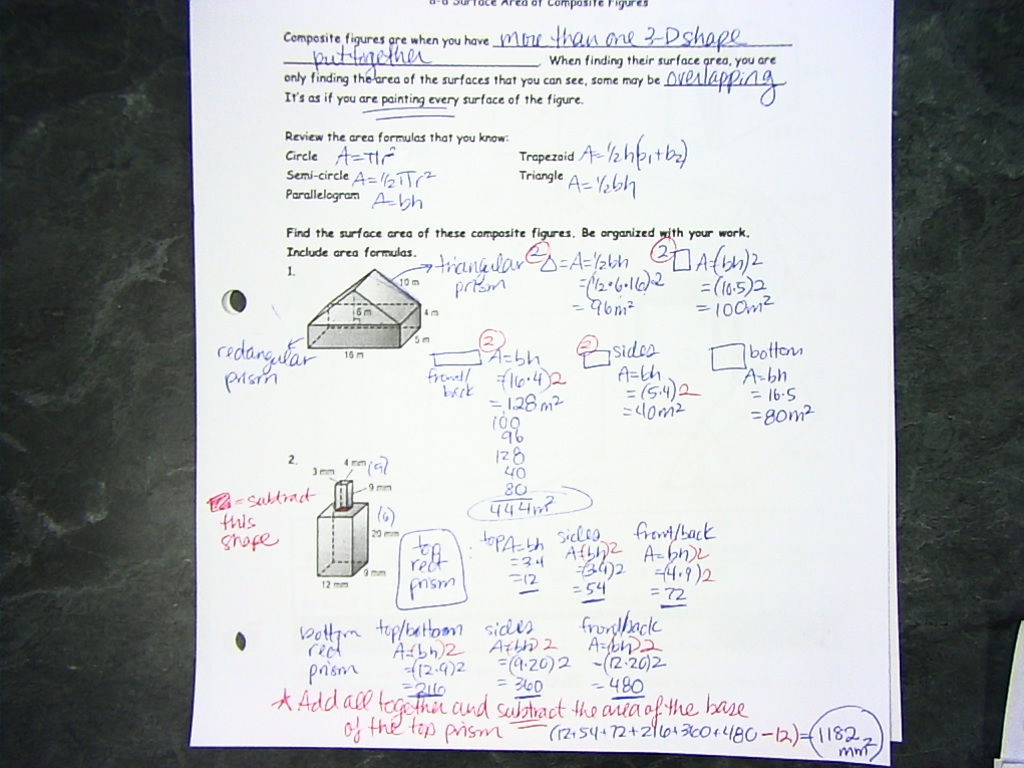 8-8 Surface Area of Composite Figures
Composite figures are when you have more than one 3-D shape
put together. When finding their surface area, you are
only finding the area of the surfaces that you can see, some may be overlapping
It's as if you are painting every surface of the figure.
Review the area formulas that you know:
Circle A=πr² Trapezoid A=½h(b₁+b₂)
Semi-circle A=½πr² Triangle A=½bh
Parallelogram A=bh
Find the surface area of these composite figures. Be organized with your work.
Include area formulas.
1. triangular prism
10 m
6 m
4 m
5 m
16 m
rectangular prism
② △=A=½bh
=(½·6·16)2
=96m²
② □ A=(bh)2
=(10·5)2
=100m²
② A=bh
front/back
=(16·4)2
=128m²
② sides
A=bh
=(5·4)2
=40m²
bottom
A=bh
=16·5
=80m²
100
96
128
40
80
444m²
2.
3 mm
4 mm (9)
9 mm
(6)
20 mm
9 mm
12 mm
= subtract
this
shape
top
rect
prism
top A=bh
=3·4
=12
sides
A=(bh)2
=(3·9)2
=54
front/back
A=(bh)2
=(4·9)2
=72
bottom
rect
prism
top/bottom
A=(bh)2
=(12·9)2
=216
sides
A=(bh)2
=(9·20)2
=360
front/back
A=(bh)2
=(12·20)2
=480
★ Add all together and subtract the area of the base
of the top prism (12+54+72+216+360+480-12)=1182
mm²